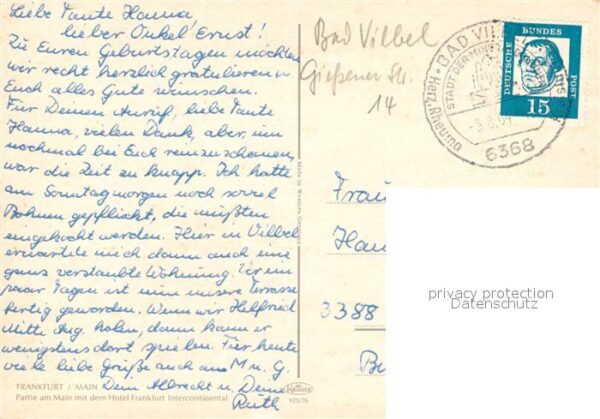 Liebe Tante Hanna,
lieber Onkel Ernst!
Zu Euren Geburtstagen möchten
wir recht herzlich gratulieren u.
Euch alles Gute wünschen.
Für Deinen Anruf, liebe Tante
Hanna, vielen Dank, aber um
nochmal bei Euch reinzuschauen,
war die Zeit zu knapp. Ich hatte
am Sonntagmorgen noch soviel
Bohnen gepflückt, die mußten
eingekocht werden. Hier in Vilbel
erwartete mich dann auch eine
ganz verstaubte Wohnung. Vor ein
paar Tagen ist nun unsere Terrasse
fertig geworden. Wenn wir Helfried
Mitte Aug. holen, dann kann er
wenigstens dort spielen. Für heute
viele liebe Grüße auch an M u. G.
Dein Albrecht u. Deine
Ruth
FRANKFURT / MAIN
Partie am Main mit dem Hotel Frankfurt Intercontinental
925/76
Bad Vilbel
Gießener Str.
14
BAD VIL
STADT DER
Herz, Rheuma
6368
DEUTSCHE BUNDES POST
15
Frau
Hau
3388
privacy protection
Datenschutz